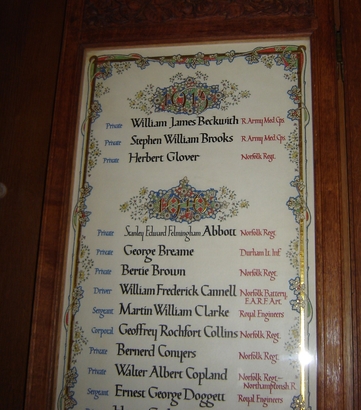 1919
Private William James Beckwith R Army Med Cps
Private Stephen William Brooks R Army Med Cps
Private Herbert Glover Norfolk Regt.
Private Stanley Edward Felmingham Abbott Norfolk Regt
Private George Breame Durham Lt. Inf
Private Bertie Brown Norfolk Regt.
Driver William Frederick Cannell Norfolk Battery
E.A.R.F. Art.
Sergeant Martin William Clarke Royal Engineers
Corporal Geoffrey Rochfort Collins Norfolk Regt.
Private Bernerd Conyers Norfolk Regt.
Private Walter Albert Copland Norfolk Regt—
Northamptonsh R
Sergeant Ernest George Doggett Royal Engineers